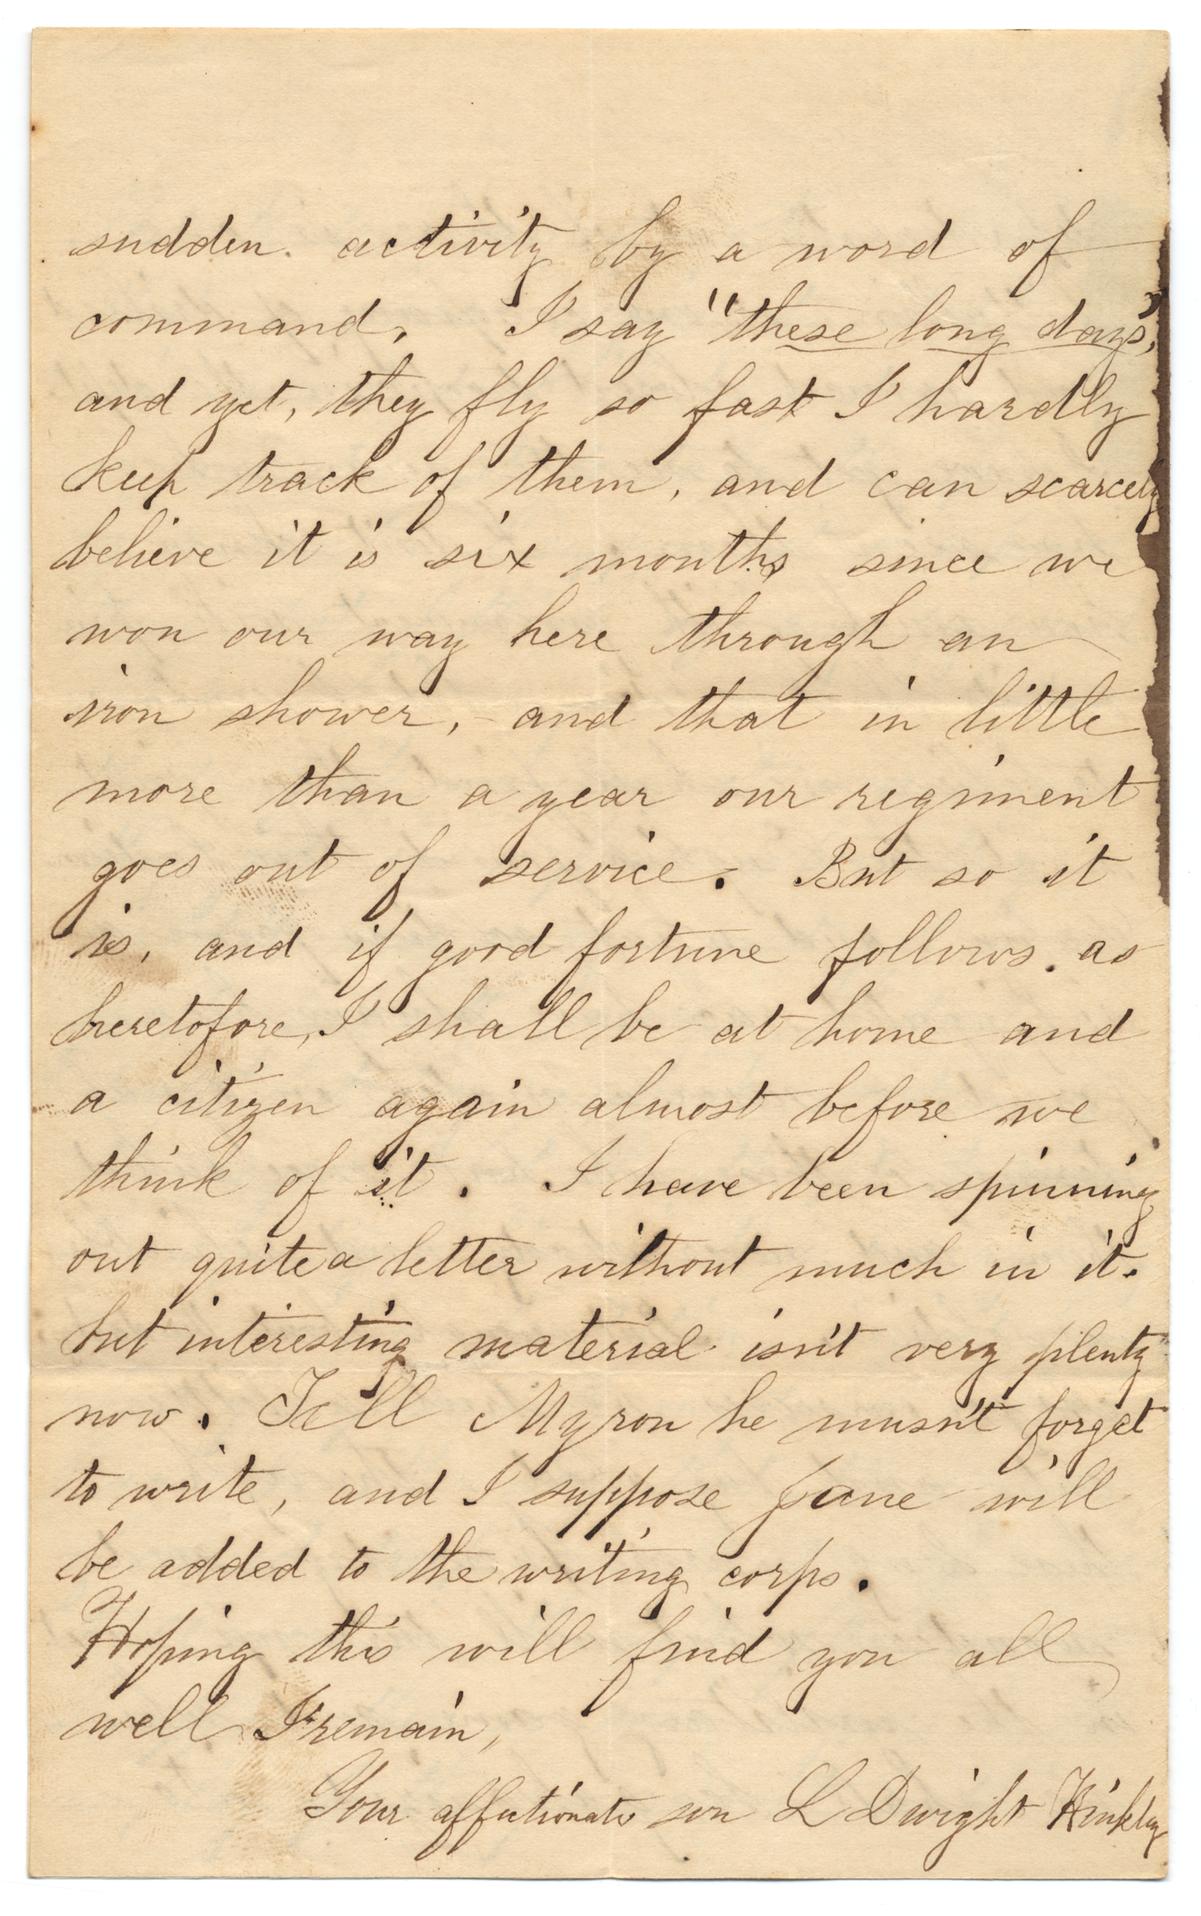 sudden activity by a word of
command. I say "these long days",
and yet, they fly so fast I hardly
keep track of them, and can scarcely
believe it is six months since we
won our way here through an
iron shower, - and that in little
more than a year our regiment
goes out of service. But so it
is, and if good fortune follows as
heretofore, I shall be at home and
a citizen again almost before we
think of it. I have been spinning
out quite a letter without much in it.
but interesting material isn't very plenty
now. Tell Myron he musn't forget
to write, and I suppose Jane will
be added to the writing corps.
Hoping this will find you all
well I remain,
Your affectionate son L Dwight Hinkley